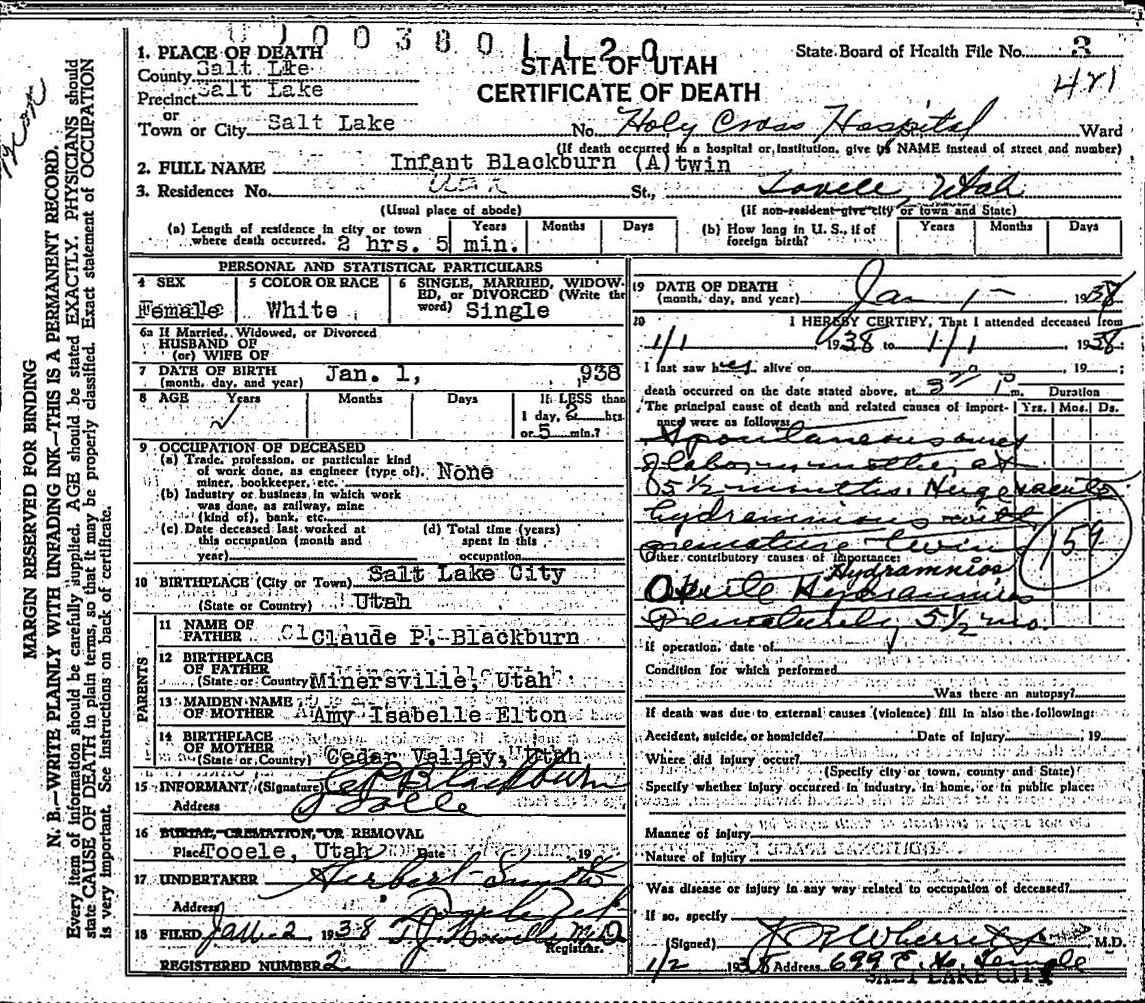 0100380 1120
State Board of Health File No. 3
421
STATE OF UTAH
CERTIFICATE OF DEATH
1. PLACE OF DEATH
County Salt Lke
Precinct Salt Lake
or
Town or City Salt Lake No. Holy Cross Hospital Ward
(If death occurred in a hospital or institution, give its NAME instead of street and number)
2. FULL NAME Infant Blackburn (A) twin
3. Residence: No. St., Utah
(Usual place of abode) (If non-resident give city or town and State)
(a) Length of residence in city or town where death occurred. 2 hrs. 5 min. Years Months Days
(b) How long in U. S., if of foreign birth? Years Months Days
PERSONAL AND STATISTICAL PARTICULARS
4 SEX Female
5 COLOR OR RACE White
6 SINGLE, MARRIED, WIDOWED, or DIVORCED (Write the word) Single
6a If Married, Widowed, or Divorced
HUSBAND OF
(or) WIFE OF
7 DATE OF BIRTH (month, day, and year) Jan. 1, 1938
8 AGE Years Months Days If LESS than
1 day, 2 hrs.
or 5 min.?
9 OCCUPATION OF DECEASED
(a) Trade, profession, or particular kind
of work done, as engineer (type of), None
miner, bookkeeper, etc.
(b) Industry or business in which work
was done, as railway, mine
(kind of), bank, etc.
(c) Date deceased last worked at
this occupation (month and
year)
(d) Total time (years)
spent in this
occupation
10 BIRTHPLACE (City or Town) Salt Lake City
(State or Country) Utah
PARENTS
11 NAME OF FATHER Claude P. Blackburn
12 BIRTHPLACE OF FATHER (State or Country) Minersville, Utah
13 MAIDEN NAME OF MOTHER Amy Isabelle Elton
14 BIRTHPLACE OF MOTHER (State or Country) Cedar Valley, Utah
15 INFORMANT (Signature) C P Blackburn
Address
16 BURIAL, CREMATION, OR REMOVAL
Place Tooele, Utah Date 19
17 UNDERTAKER Herbert Smith
Address
18 FILED Jan-2 1938 Registrar.
REGISTERED NUMBER 2
19 DATE OF DEATH
(month, day, and year) Jan 1 - 1938
20 I HEREBY CERTIFY, That I attended deceased from
1/1 1938 to 1/1 1938
I last saw her alive on , 19 ;
death occurred on the date stated above, at m. Duration
The principal cause of death and related causes of importance were as follows: Yrs. Mos. Ds.
Spontaneous onset
of labor in mother at
5 1/2 months. Huge acute
hydramnious with
premature twins
159
Other contributory causes of importance:
Hydramnios
Acute Hydramnios
Prematurely 5 1/2 mo.
If operation, date of
Condition for which performed
Was there an autopsy?
If death was due to external causes (violence) fill in also the following:
Accident, suicide, or homicide? Date of injury , 19
Where did injury occur?
(Specify city or town, county and State)
Specify whether injury occurred in industry, in home, or in public place:
Manner of injury
Nature of injury
Was disease or injury in any way related to occupation of deceased?
If so, specify
(Signed) M.D.
1/2 1938 Address 699 E. So. Temple
SALT LAKE CITY
MARGIN RESERVED FOR BINDING
N. B.—WRITE PLAINLY WITH UNFADING INK—THIS IS A PERMANENT RECORD.
Every item of information should be carefully supplied. AGE should be stated EXACTLY. PHYSICIANS should
state CAUSE OF DEATH in plain terms, so that it may be properly classified. Exact statement of OCCUPATION
is very important. See instructions on back of certificate.